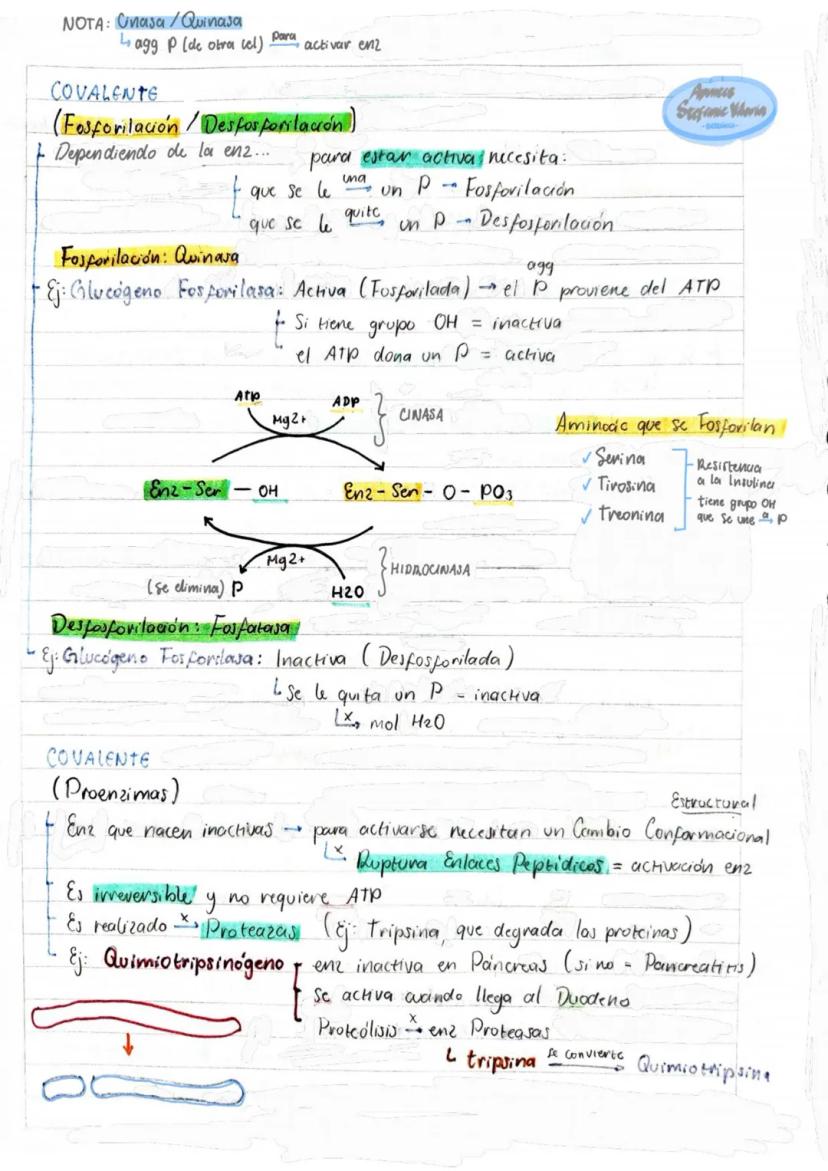 NOTA: Cinasa / Quinasa
↳ agg P (de otra cel) para → activar enz
COVALENTE
(Fosforilación / Desfosforilación)
Dependiendo de la enz... para estar activa necesita:
que se le una → un P → Fosforilación
que se le quite → un P → Desfosforilación
Fosforilación: Quinasa
Ej: Glucógeno Fosforilasa: Activa (Fosforilada) → el P agg proviene del ATP
Si tiene grupo OH = inactiva
el ATP dona un P = activa
ATP ADP
Mg2+
CINASA
Enz-Ser — OH
Enz-Ser - O - PO3
Mg2+
(se elimina) P
H2O
HIDROCINASA
Aminoác que se Fosforilan
✓ Serina
✓ Tirosina
✓ Treonina
Resistencia
a la Insulina
tiene grupo OH
que se une a → P
Desfosforilación: Fosfatasa
Ej: Glucógeno Fosforilasa: Inactiva (Desfosforilada)
↳ Se le quita un P - inactiva
↳ x → mol H2O
COVALENTE
(Proenzimas)
Estructural
Enz que nacen inactivas → para activarse necesitan un Cambio Conformacional
↳ x Ruptura Enlaces Peptídicos = activación enz
Es irreversible y no requiere ATP
Es realizado x → Proteazas (Ej: Tripsina, que degrada las proteínas)
Ej: Quimiotripsinógeno
enz inactiva en Páncreas (si no = Pancreatitis)
Se activa cuando llega al Duodeno
Proteólisis x → enz Proteasas
↳ tripsina se convierte → Quimiotripsina